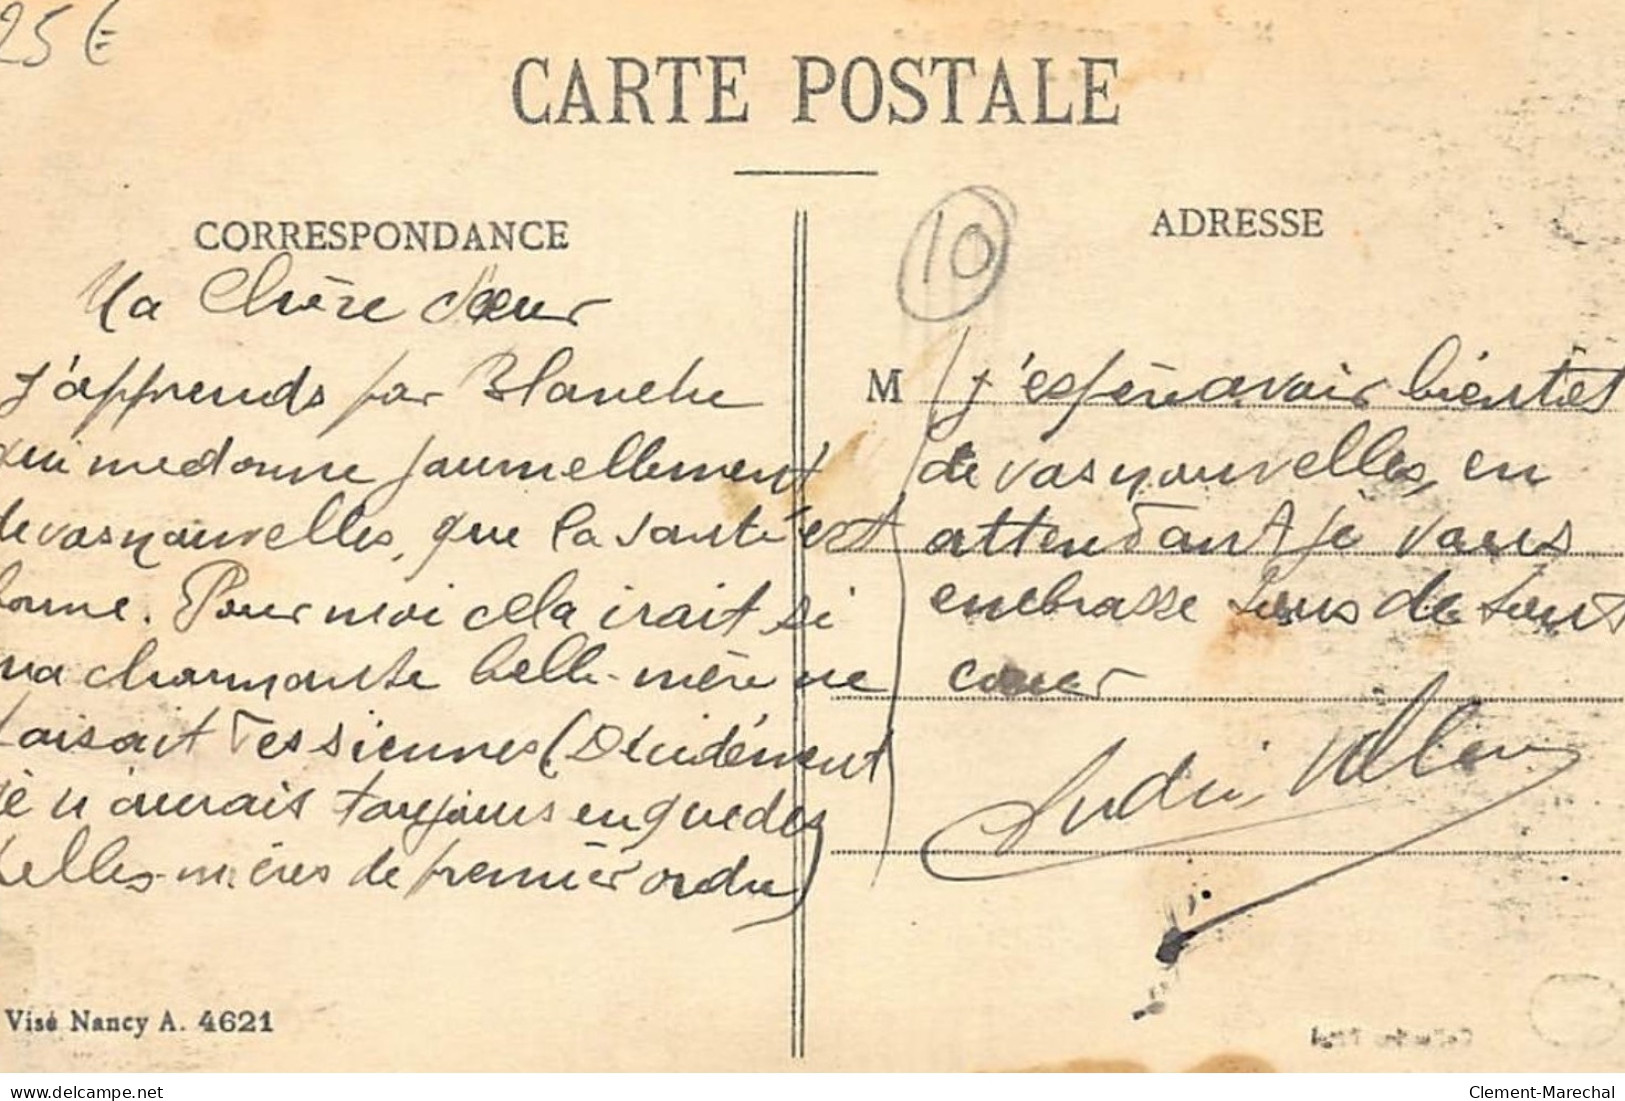 25 €
CARTE POSTALE
CORRESPONDANCE
Ma Chère Sœur
J'apprends par Blanche
qui me donne journellement
de vos nouvelles, que la santé est
bonne. Pour moi cela irait si
ma charmante belle-mère ne
faisait des siennes (Décidément
je n'aurais toujours eu que des
belles-mères de premier ordre)
10
ADRESSE
M
j'espère avoir bientôt
de vos nouvelles, en
attendant je vous
embrasse tous de tout
cœur
André
Visé Nancy A. 4621
delcampe.net
Clement-Marechal